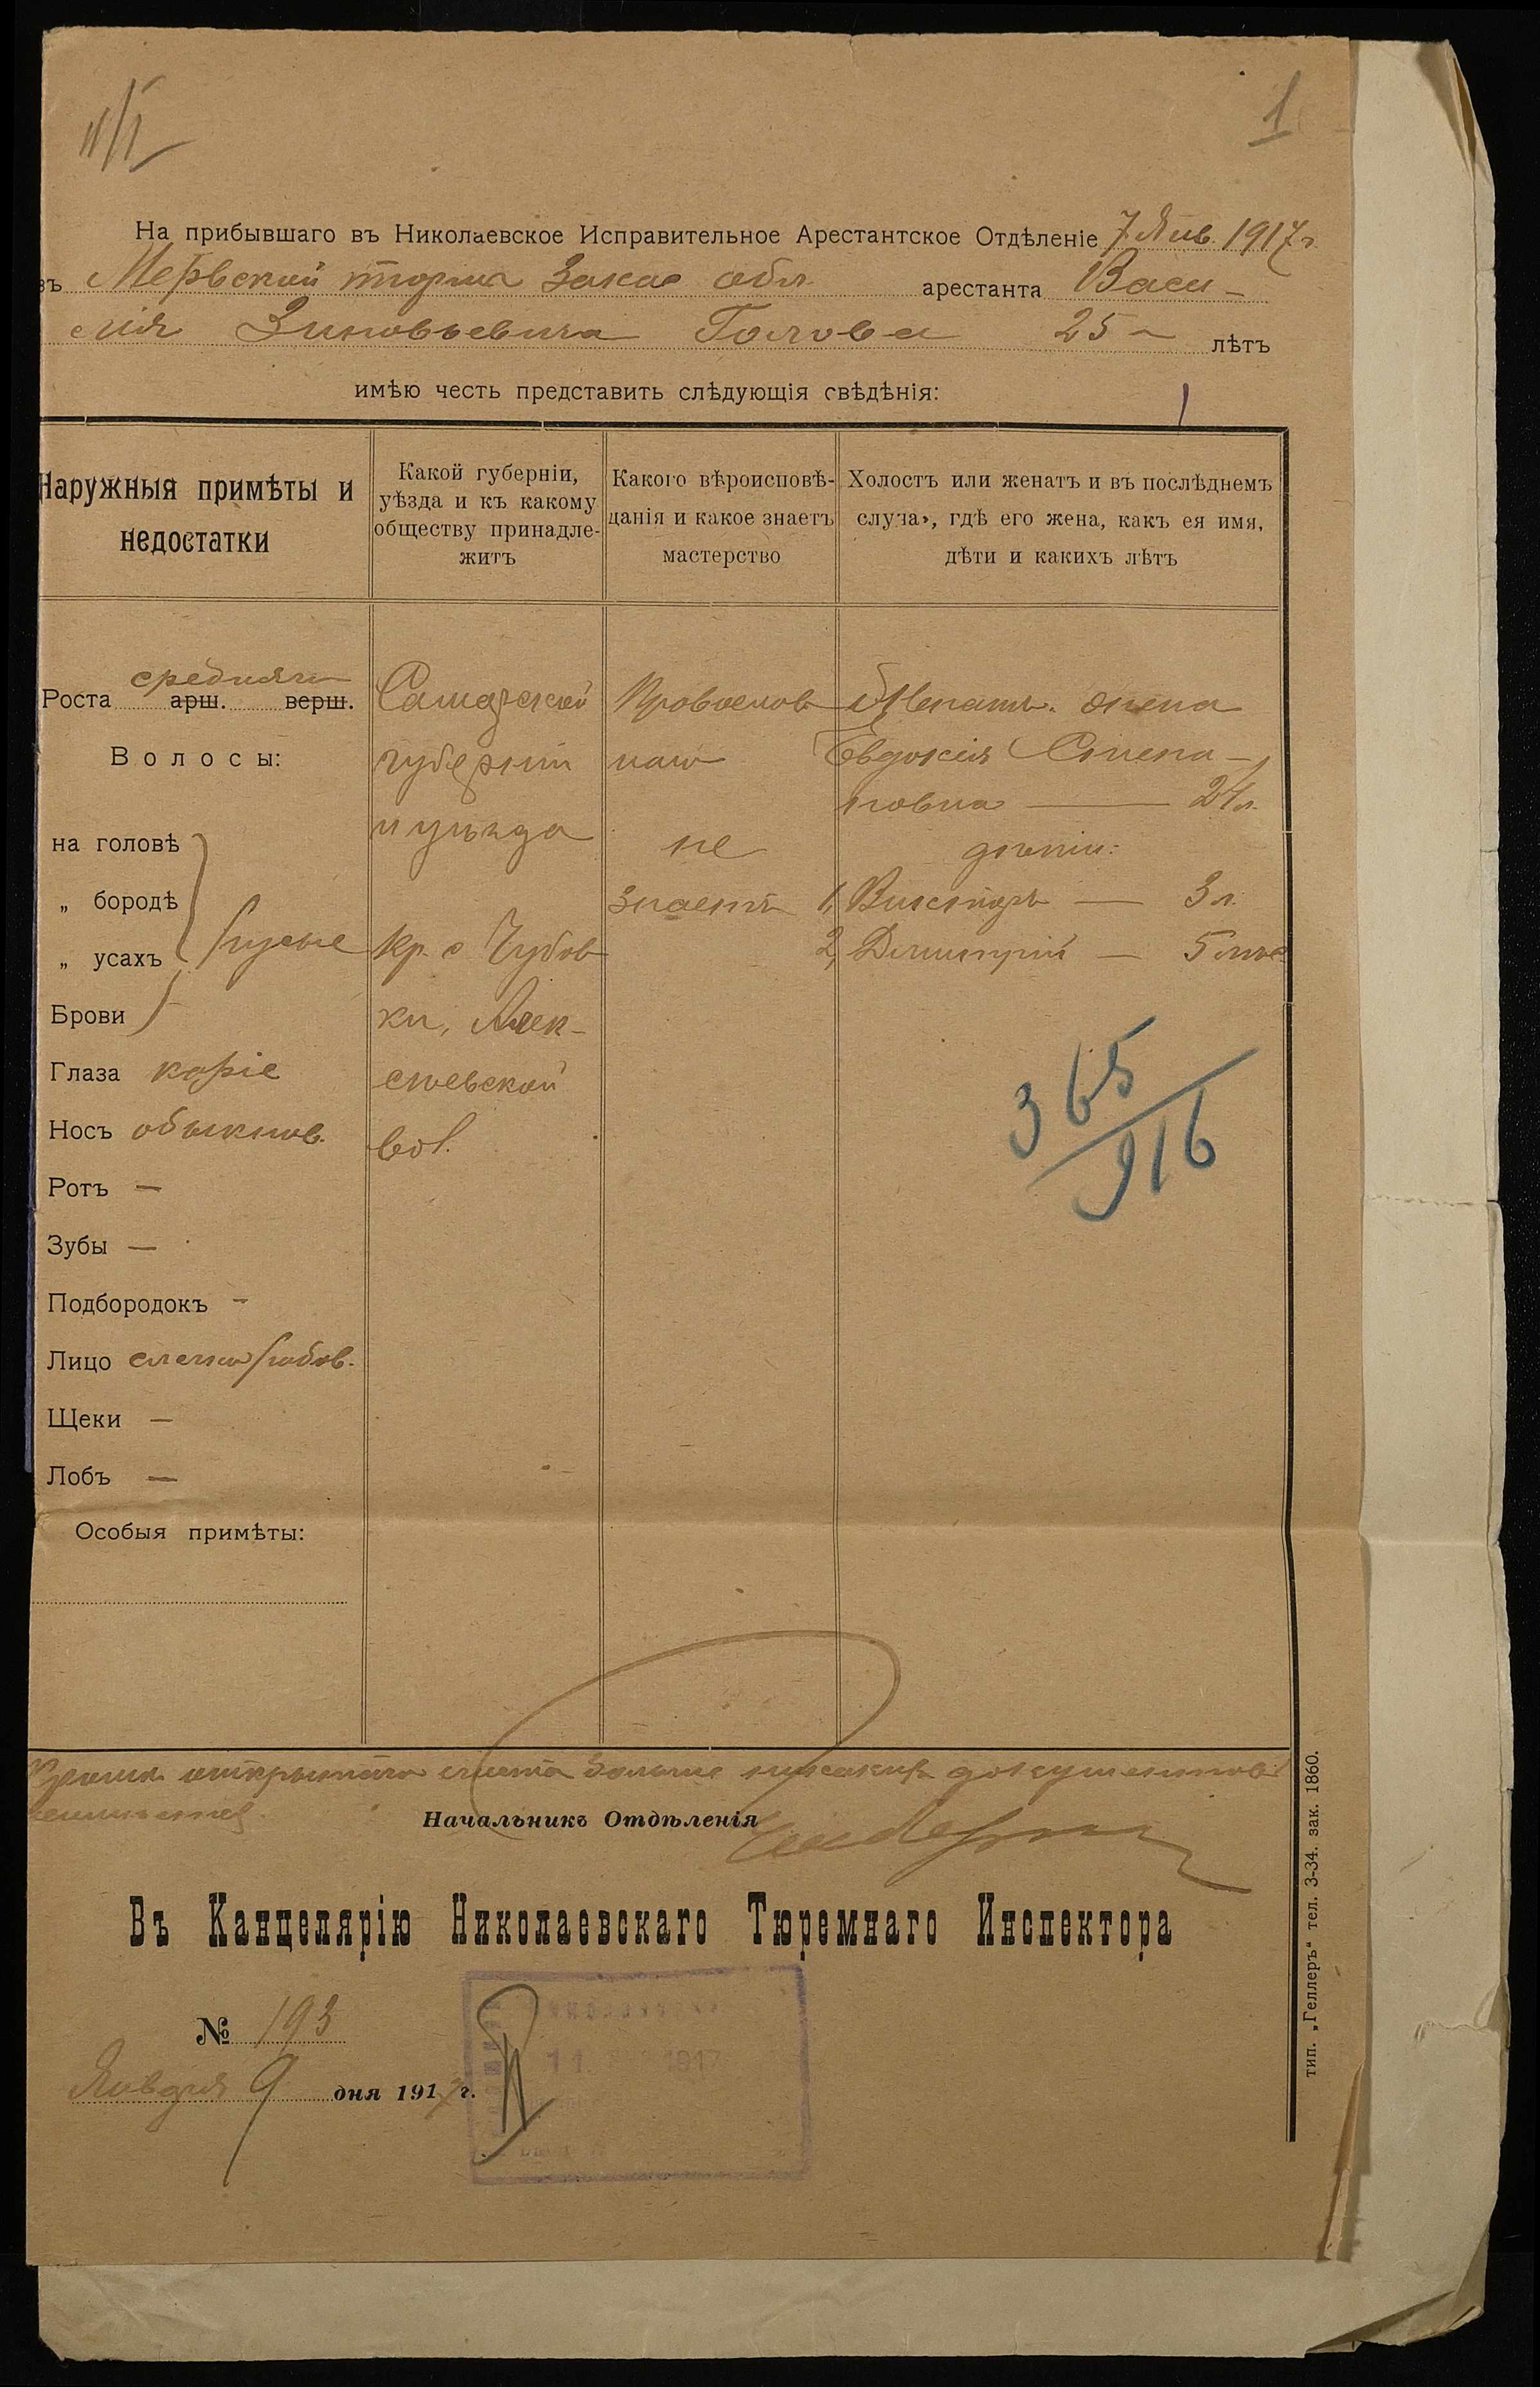 1
На прибывшаго въ Николаевское Исправительное Арестантское Отдѣленіе 7 Янв. 1917 г.
въ Мервской тюрма Закас обл арестанта Васи-
лія Зиновьевича Голова 25 лѣтъ
имѣю честь представить слѣдующія свѣдѣнія:
Наружныя примѣты и недостатки
Какой губерніи,
уѣзда и къ какому
обществу принадле-
житъ
Какого вѣроисповѣ-
данія и какое знаетъ
мастерство
Холостъ или женатъ и въ послѣднемъ
случаѣ, гдѣ его жена, какъ ея имя,
дѣти и какихъ лѣтъ
Роста средняго арш. верш.
Волосы:
на головѣ
„ бородѣ
„ усахъ русые
Брови
Глаза каріе
Носъ обыкнов.
Ротъ —
Зубы —
Подбородокъ -
Лицо слегка рябов.
Щеки —
Лобъ —
Особыя примѣты:
Самарской
губерніи
и уѣзда
кр. с Чубов
ки, Алек-
сѣевской
вол.
Православ
наго
не
знаетъ
Женатъ. жена
Евдокія Степа-
новна — 24 л.
дѣти:
1, Викторъ — 3 л.
2, Димитрій — 5 мѣс
365/916
Кромѣ открытаго листа больше никакихъ документовъ
не имѣется.
Начальникъ Отдѣленія
Въ Канцелярію Николаевскаго Тюремнаго Инспектора
№ 193
Января 9 дня 1917 г.
11 1917
тип. „Геллеръ“ тел. 3-34. зак. 1860.